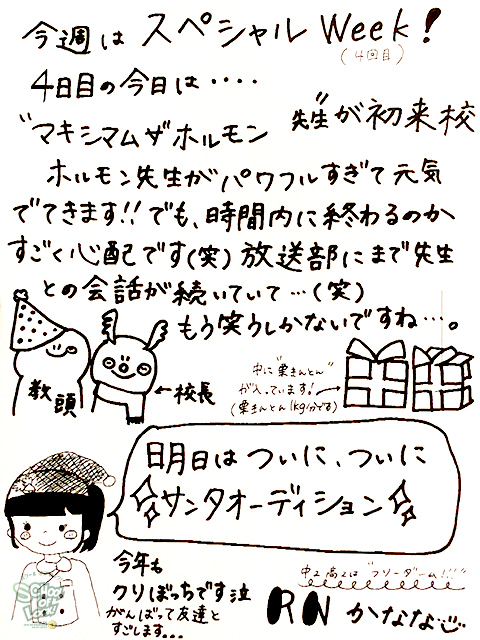 今週は スペシャル Week!
(4回目)
4日目の今日は・・・・
"マキシマム ザ ホルモン 先生"が初来校
ホルモン先生がパワフルすぎて元気
でてきます!!でも、時間内に終わるのか
すごく心配です(笑)放送部にまで先生
との会話が続いていて…(笑)
もう笑うしかないですね…。
教頭
←校長
中に"栗きんとん"
が入っています!
(栗きんとん1kg分です)
明日は ついに、ついに
サンタオーディション
今年も
クリぼっちです泣
がんばって友達と
すごします...
中2 高2は"フリーダーム!!!"
RN かななよ